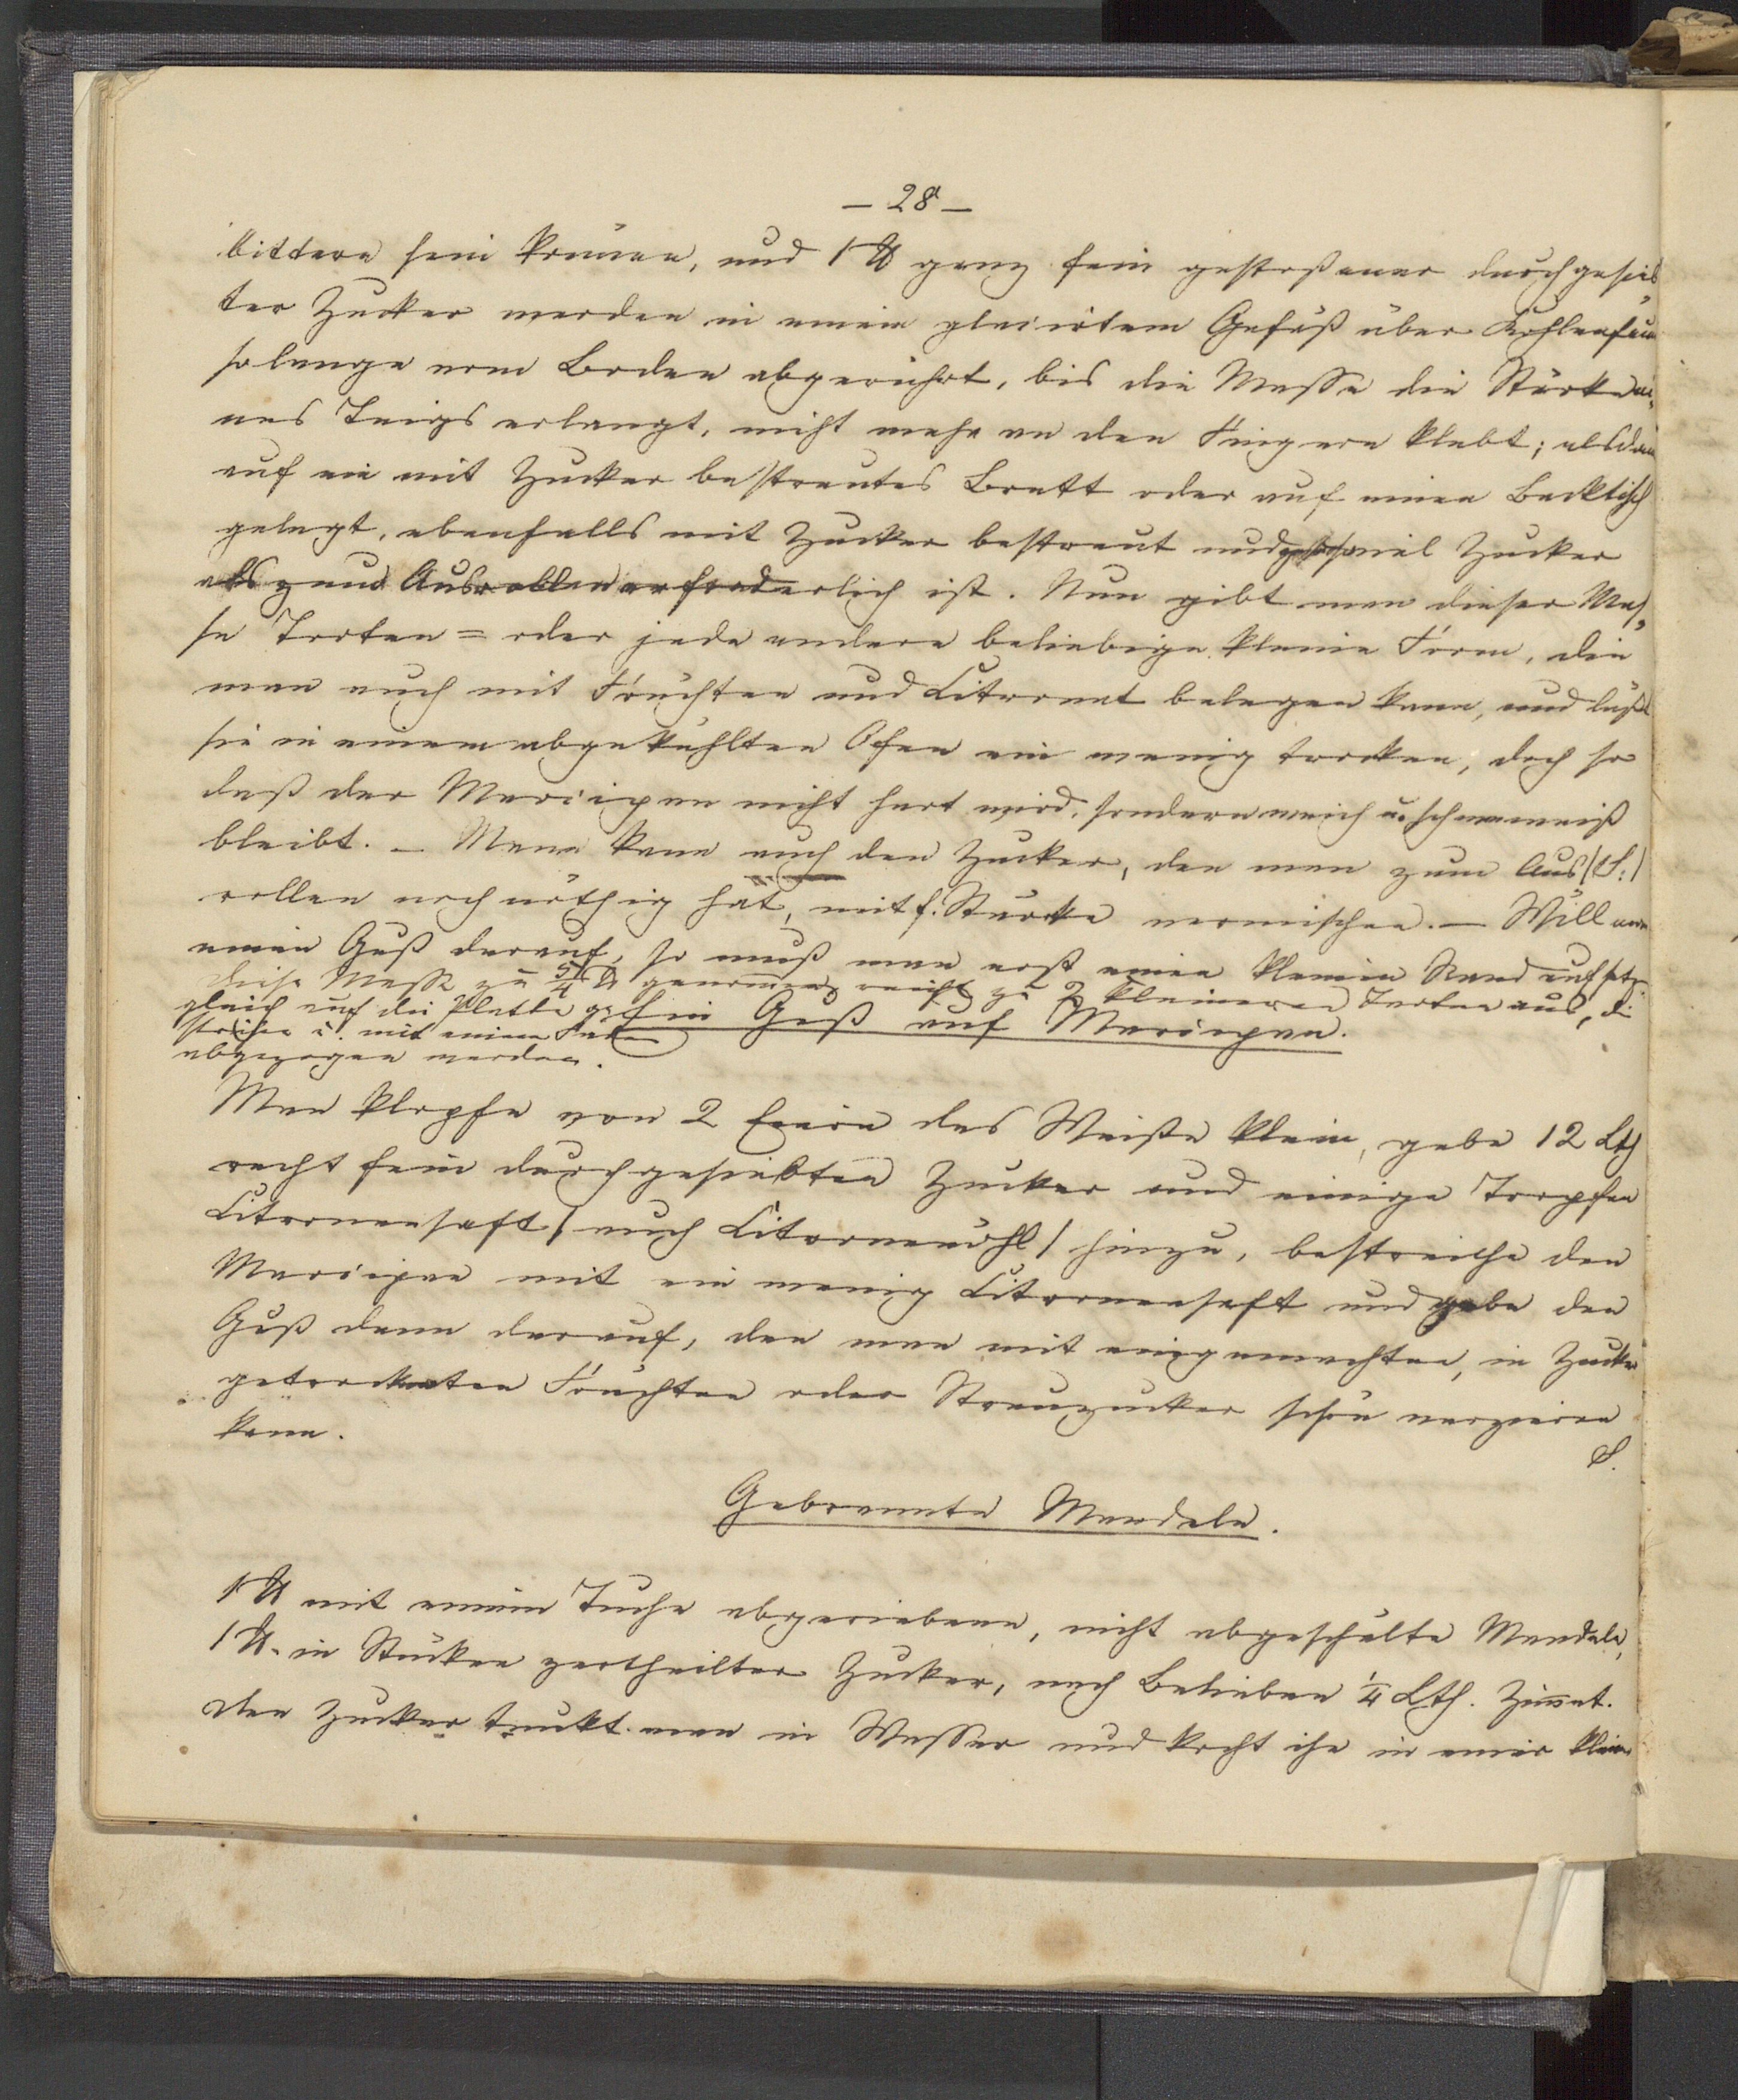 — 28 —
bittere sein können, und 1 ℔ ganz fein gestoßener durchgesieb
ter Zucker werden in einem glasirtem Gefäß über Kohlenfeuer
so lange vom Boden abgerührt, bis die Masse die Stärke ei„
nes Teigs erlangt, nicht mehr an den Fingern klebt; alsdann
auf ein mit Zucker bestreutes Brett oder auf einen Backtisch
gelegt, ebenfalls mit Zucker bestreut und so viel Zucker
als zum Ausrollen erforderlich ist. Nun gibt man dieser Mas„
se Torten= oder jede andere beliebige kleine Form, die
man auch mit Früchten und Citronat belegen kann, und läßt
sie in einem abgekühlten Ofen ein wenig trocknen, doch so
daß der Marcipan nicht hart wird, sondern weich u. schneeweiß
bleibt. — Mann kann auch den Zucker, den man zum Aus (S.)
rollen noch nöthig hat, mit f. Stärke vermischen. — Will man
einen Guß darauf, so muß man erst einen kleinen Rand aufsetz.
diese Masse zu 5/4 ℔ genommen reicht zu 2 kleineren Torten aus, di
gleich auf die Platte
Ein Guß auf Marcipan.
strichen u. mit einem
abgezogen werden.
Man klopfe von 2 Eiern das Weiße klein, gebe 12 Lth
recht fein durchgesiebten Zucker und einige Tropfen
Citronensaft / auch Citronenöhl / hinzu, bestreiche den
Marcipan mit ein wenig Citronensaft und gebe den
Guß dann darauf, den man mit eingemachten, in Zucker
getrockneten Früchten oder Streuzucker schön verzieren
kann.
S.
Gebrannte Mandeln.
1 ℔ mit einem Tuche abgeriebene, nicht abgeschälte Mandeln,
1 ℔. in Stücken zertheilter Zucker, nach Belieben 1/4 Lth. Zimmt.
Den Zucker tunkt man in Wasser und kocht ihn in einer klein